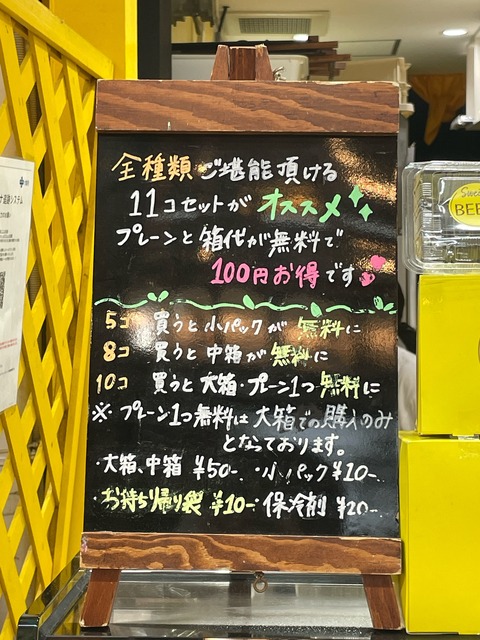 全種類ご堪能頂ける
11コセットがオススメ
プレーンと箱代が無料で
100円お得です
5コ 買うと小パックが 無料に
8コ 買うと中箱が無料に
10コ 買うと大箱・プレーン1つ無料に
※プレーン1つ無料は大箱でご購入のみ
となっております。
・大箱、中箱 ¥50-.・小パック¥10-.
・お持ち帰り袋 ¥10-・保冷剤 ¥20-.
Swee
BEE